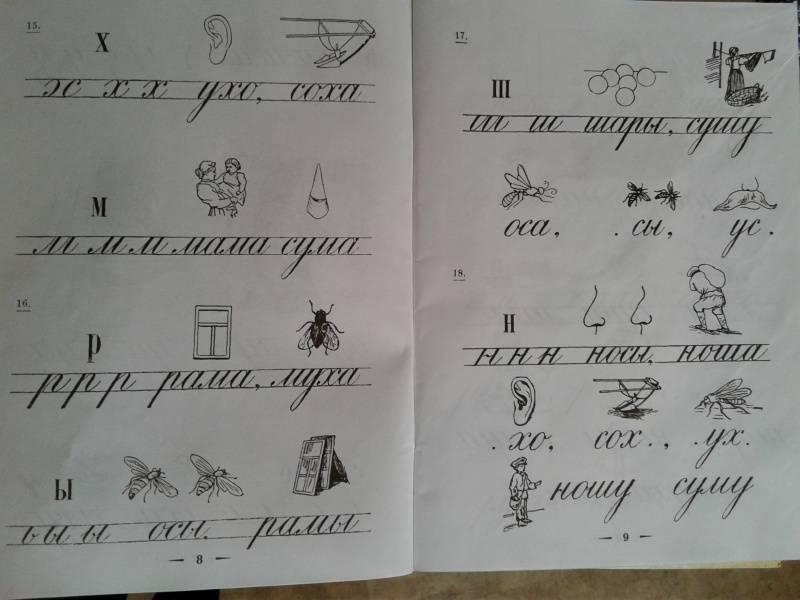 15.
х
х х х ухо, соха
м
м м м мама сума
16.
р
р р р рама, муха
ы
ы ы ы осы. рамы
— 8 —
17.
ш
ш ш шары, сушу
оса, .сы, ус.
18.
н
н н н носы, ноша
.хо, сох., .ух.
ношу суму
— 9 —